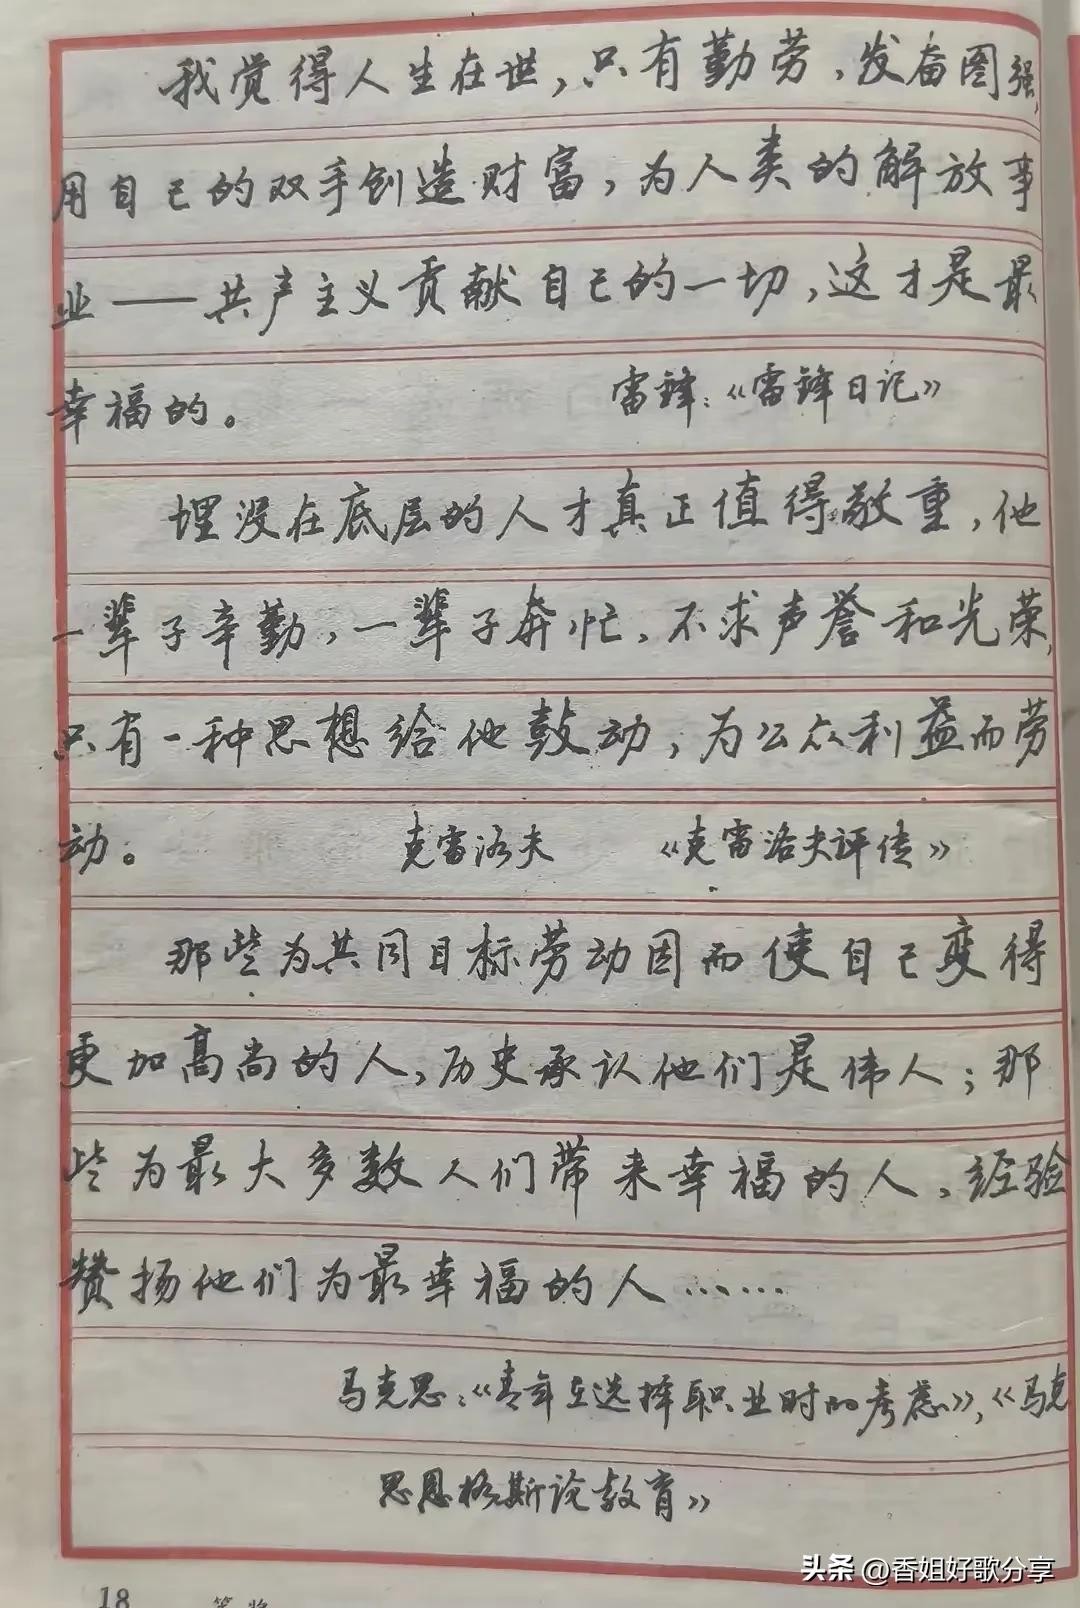 我觉得人生在世，只有勤劳，发奋图强，
用自己的双手创造财富，为人类的解放事
业——共产主义贡献自己的一切，这才是最
幸福的。　　雷锋：《雷锋日记》
埋没在底层的人才真正值得敬重，他
一辈子辛勤，一辈子奔忙，不求声誉和光荣，
只有一种思想给他鼓动，为公众利益而劳
动。　　克雷洛夫　《克雷洛夫评传》
那些为共同目标劳动因而使自己变得
更加高尚的人，历史承认他们是伟人；那
些为最大多数人们带来幸福的人，经验
赞扬他们为最幸福的人……
马克思：《青年在选择职业时的考虑》，《马克
思恩格斯论教育》
18
头条 @香姐好歌分享